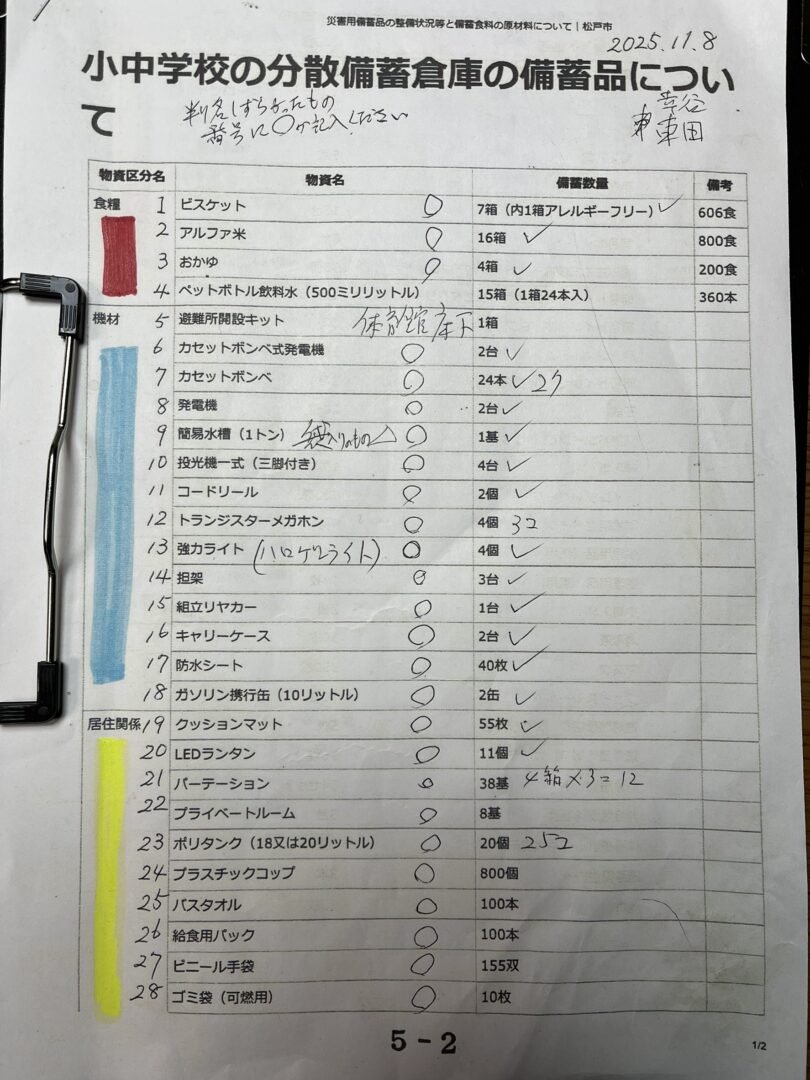 災害用備蓄品の整備状況等と備蓄食料の原材料について | 松戸市
2025.11.8
小中学校の分散備蓄倉庫の備蓄品につい
て
番号に○か記入ください
幸谷
車田
物資区分名 物資名 備蓄数量 備考
食糧 1 ビスケット ○ 7箱（内1箱アレルギーフリー）✓ 606食
2 アルファ米 ○ 16箱 ✓ 800食
3 おかゆ ○ 4箱 ✓ 200食
4 ペットボトル飲料水（500ミリリットル） 15箱（1箱24本入） 360本
機材 5 避難所開設キット 体育館床下 1箱
6 カセットボンベ式発電機 ○ 2台 ✓
7 カセットボンベ ○ 24本 ✓ 27
8 発電機 ○ 2台 ✓
9 簡易水槽（1トン） 袋入りのもの△ ○ 1基 ✓
10 投光機一式（三脚付き） ○ 4台 ✓
11 コードリール ○ 2個 ✓
12 トランジスターメガホン ○ 4個 3コ
13 強力ライト (ハロゲンライト) ○ 4個 ✓
14 担架 ○ 3台 ✓
15 組立リヤカー ○ 1台 ✓
16 キャリーケース ○ 2台 ✓
17 防水シート ○ 40枚 ✓
18 ガソリン携行缶（10リットル） ○ 2缶 ✓
居住関係 19 クッションマット ○ 55枚 ✓
20 LEDランタン ○ 11個 ✓
21 パーテーション ○ 38基 4箱×3=12
22 プライベートルーム ○ 8基
23 ポリタンク（18又は20リットル） ○ 20個 25コ
24 プラスチックコップ ○ 800個
25 バスタオル ○ 100本
26 給食用パック ○ 100本
27 ビニール手袋 ○ 155双
28 ゴミ袋（可燃用） ○ 10枚
5-2
1/2